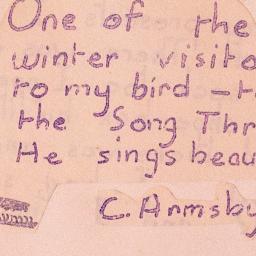 One of the
winter visito
to my bird – t
the Song Thr
He sings beau
C. Armsby